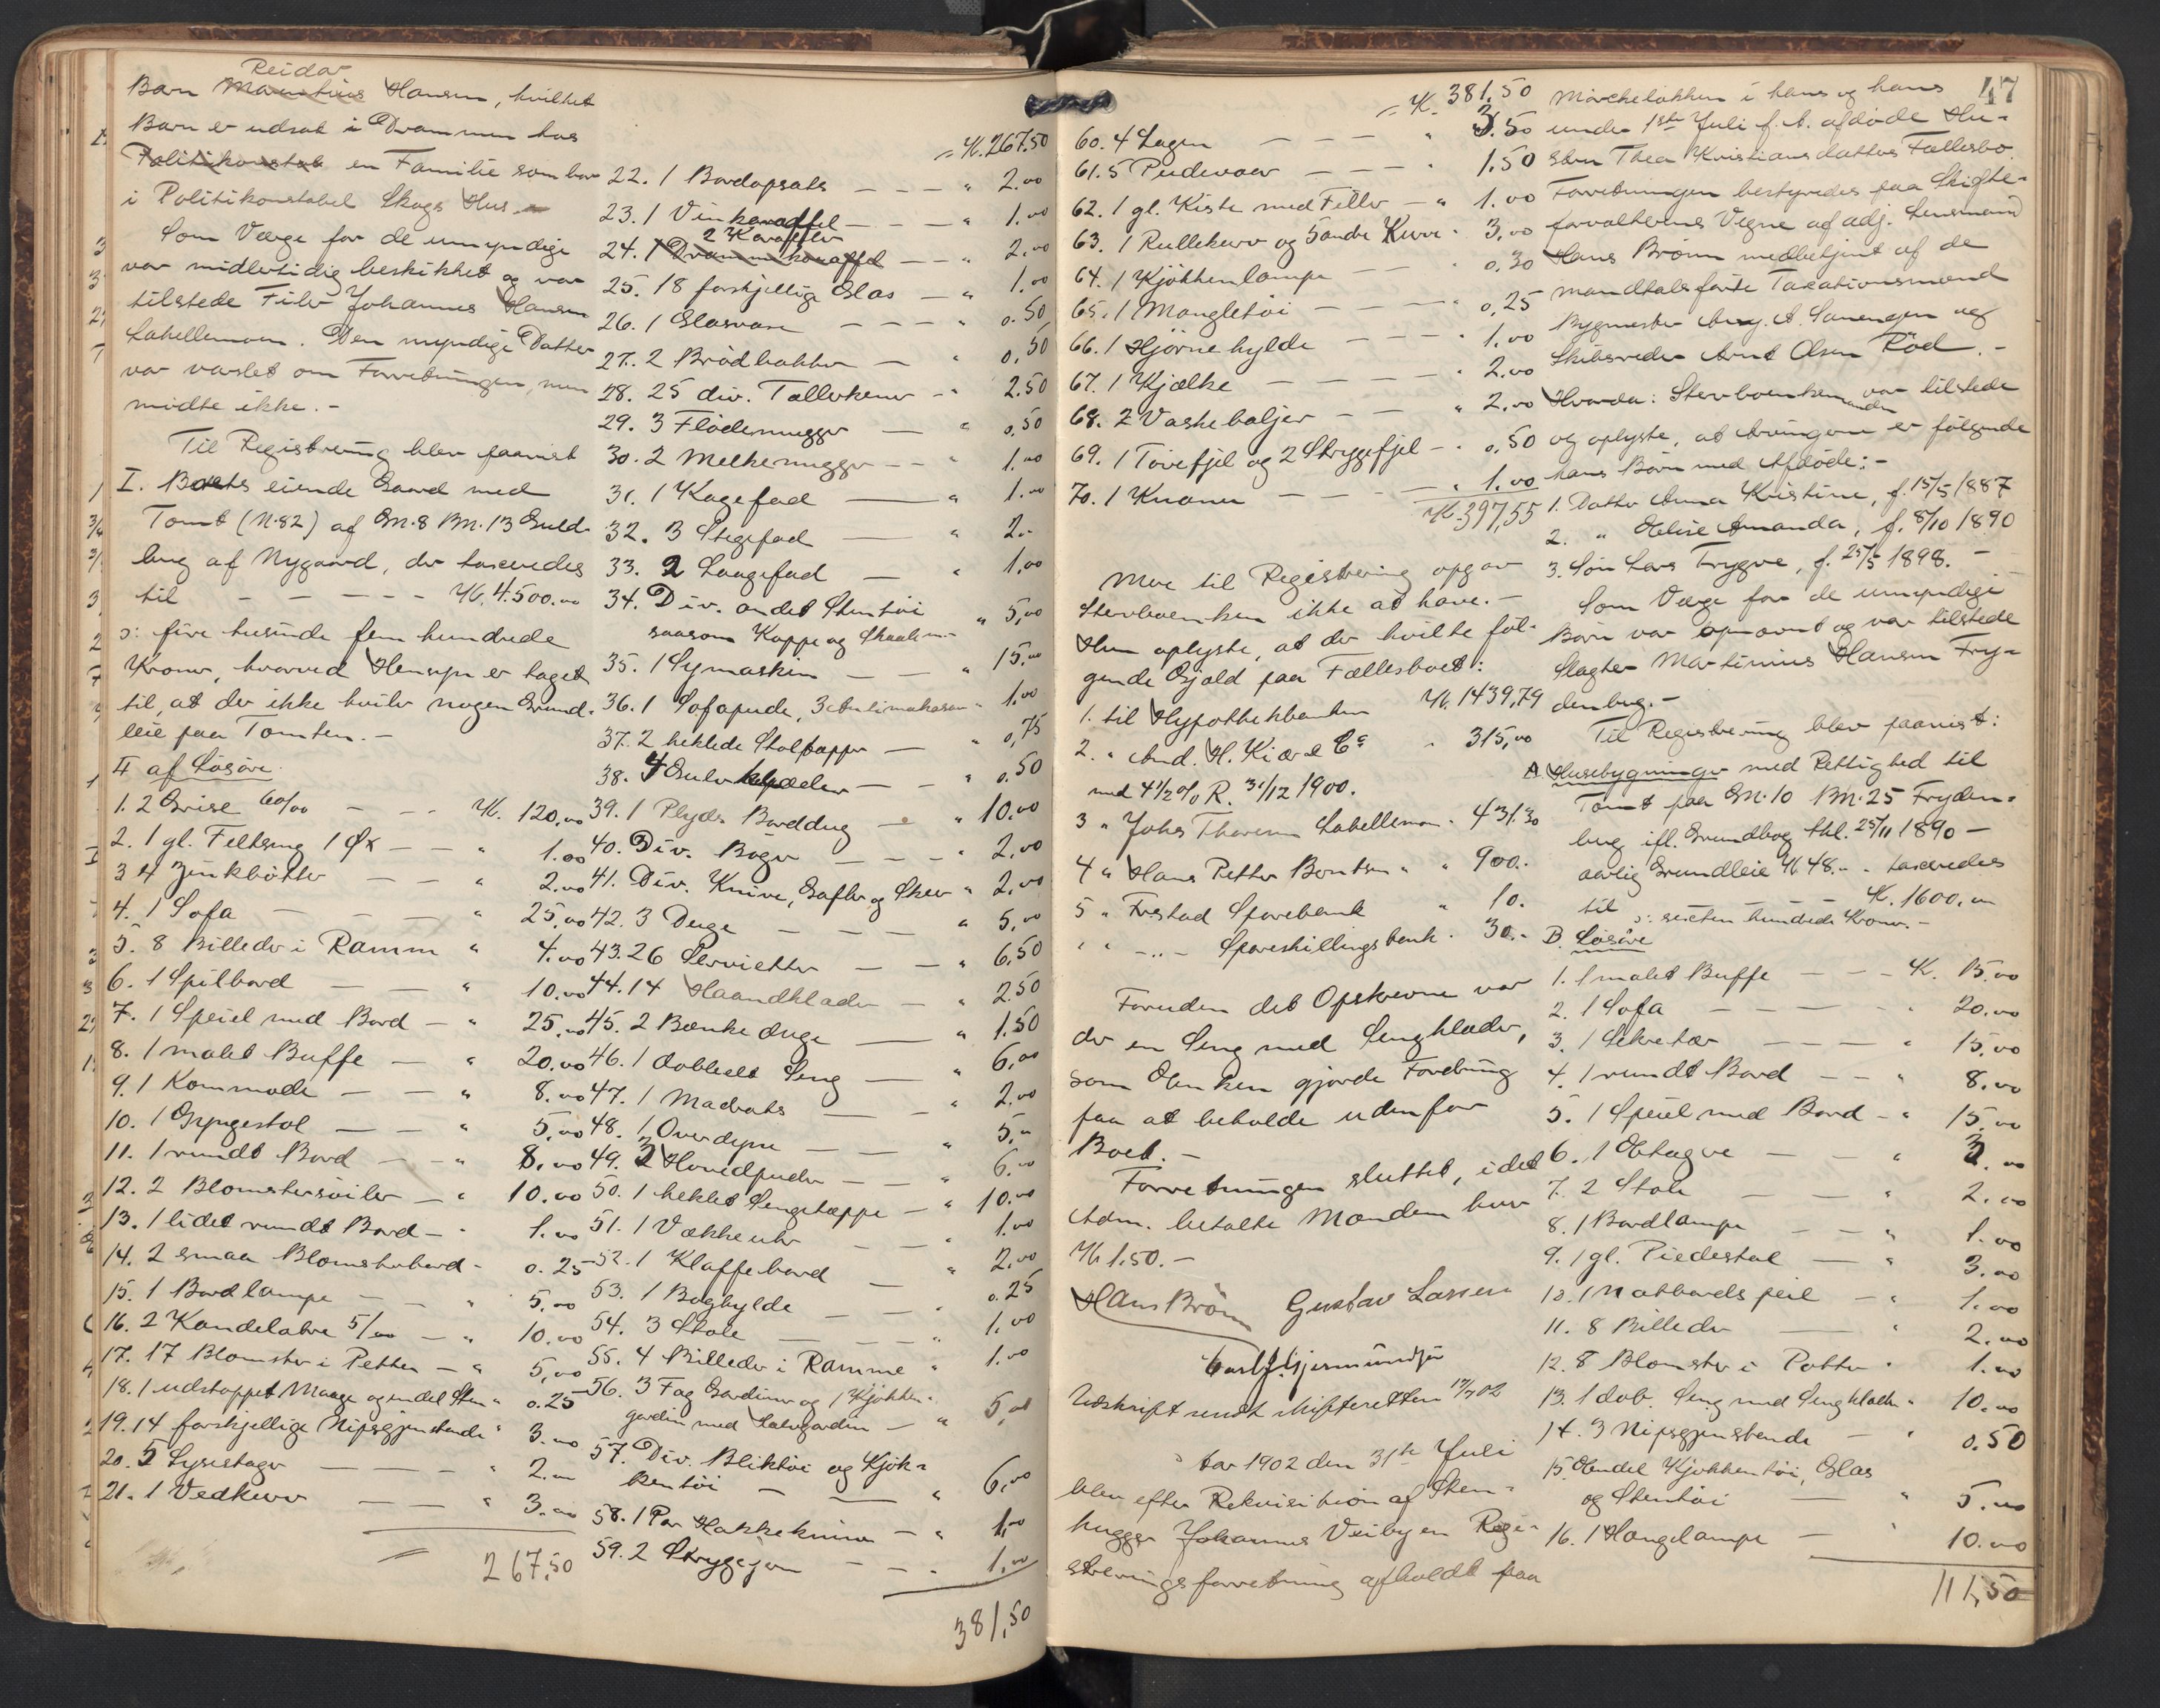 Reidar
Barn Mauritius Hansen, hvilket
Barn er udsat i Drammen hos
Politikonstab en Familie som bor
i Politikonstabel Skogs Hus.
Som Værge for de umyndige
var midlertidig beskikket og var
tilstede Filer Johannes Hansen
Labellemoen. Den myndige Datter
var varslet om Forretningen, men
mødte ikke.-
Til Registrering blev paavist
I. Boets eiende Gaard med
Tomt (N.82) af Gn.8 Bn.13 Guld-
berg af Nygaard, der taxeredes
til - - - - - K. 4.500.00
ɔ: fire tusinde fem hundrede
Kroner, hvorved Hensyn er taget
til, at der ikke hviler nogen Grund-
leie paa Tomten.-
II af Løsøre.
1. 2 Grise 60/00 - - K. 120,00
2. 1 gl. Feltseng 1 Øx - - " 1.00
3 4 Zinkbøtter - - " 2.00
4. 1 Sofa - - - " 25,00
5. 8 Billeder i Ramm " 4.00
6. 1 Spilbord - - " 10.00
7. 1 Speil med Bord - " 25.00
8. 1 malet Buffe - " 20.00
9. 1 Kommode - - " 8.00
10. 1 Gyngestol - - " 5,00
11. 1 rundt Bord - - " 8.00
12. 2 Blomstersøiler - " 10.00
13. 1 lidet rundt Bord - " 1.00
14. 2 smaa Blomsterbord - 0.25
15. 1 Bordlampe - - " 5.00
16. 2 Kandelabre 5/00 - " 10.00
17. 17 Blomster i Potter - " 5,00
18. 1 udstoppet Maage og endel Sten " 0.25
19. 14 forskjellige Nipsgjenstande " 3.00
20. 5 Lysestager - - - " 2.00
21. 1 Vedkurv - - " 3.00
267,50
= K. 267.50
22. 1 Bordopsats - - - " 2.00
23. 1 Vinkaraffel - - - " 1.00
2 Karafler
24. 1 Dramkaraffel - - " 2.00
25. 18 forskjellige Glas - " 1.00
26. 1 Glasvase - - - " 0.50
27. 2 Brødbakker - " 0,50
28. 25 div. Tallerkener - " 2.50
29. 3 Flødemugger - " 0,50
30. 2 Melkemugger - - " 1.00
31. 1 Kagefad - " 1.00
32. 3 Stegefad - " 2.-
33. 2 Laagefad - " 1,00
34. Div. andet Stentøi
saasom Koppe og Skaaler - " 5,00
35. 1 Symaskin - - " 15,00
36. 1 Sofapude, 3 Antimakasser " 1.00
37. 2 heklede Stoltæpper - " 0,75
38. 4 Gulvklæder - - " 0.50
39. 1 Plyds Borddug - " 10.00
40. Div. Bøger - - - " 2.00
41. Div. Knive, Gafler og Skeer " 2.00
42. 3 Duge - - - " 5,00
43. 26 Servietter - - " 6,50
44. 14 Haandklæder - " 2.50
45. 2 Bænke duge - " 1.50
46. 1 dobbelt Seng - " 6,00
47. 1 Madrats - - " 2.00
48. 1 Overdyne - - " 5.-
49. 3 Hovedpuder - - " 6.00
50. 1 heklet Sengetæppe - " 10.00
51. 1 Vækkeuhr - - " 1.00
52. 1 Klaffebord - " 2.00
53. 1 Boghylde - - " 0.25
54. 3 Stole - - - " 1.00
55. 4 Billeder i Ramme " 1.00
56. 3 Fag Gardiner og 1 Kjøkken-
gardin med - " 5,00
57. Div. Bliktøi og Kjøk-
kentøi - - " 6,00
58. 1 Par Hakkeknive - " 1,00
59. 2 Strygejern - - - 1.00
381,50
= K. 381,50
60. 4 Lagen - - - " 3.50
61. 5 Pudevaer - - - " 1.50
62. 1 gl. Kiste med Filler - " 1.00
63. 1 Rullekurv og 5 andre Kurve - 3,00
64. 1 Kjøkkenlampe - - - 0,30
65. 1 Mangletøi - - - " 0,25
66. 1 Hjørnehylde - - - " 1.00
67. 1 Kjælke - - - - " 2.00
68. 2 Vaskebaljer - - " 2,00
69. 1 Tøvefjel og 2 Strygefjel - " 0,50
70. 1 Knaner - - - - " 1.00
K 397,55
Mere til Registrering opgav
Stervboenken ikke at have.-
Hun oplyste, at der hvilte føl-
gende Gjæld paa Fællesboet:
1. til Hypothekbanken K. 1439,79
2. " And. H. Kiær & Co " 315,00
med 4½ % R. 31/12 1900.
3 " Johs Thoresen Labellemoen " 431.30
4 " Hans Petter Berntsen " " 900.-
5 " Fr.stad Sparebank " 10.
" " -"- Spareskillingsbank " 30.-
Foruden det Opskrevne var
der en Seng med Sengklæder,
som Enken gjorde Fordring
paa at beholde udenfor
Boet.-
Forretningen sluttet, idet
Adm. betalte Mændene hver
K 1.50.-
Hans Brönn Gustav Larsen
Carl J. Gjermundsen
Udskrift sendt Skifteretten 17/7 02
Aar 1902 den 31te Juli
blev efter Rekvisition af Sten-
hugger Johannes Veibyen Regi-
streringsforretning afholdt paa
47
Mörcheløkken i hans og hans
under 1ste Juli f. A. afdøde Hu-
stru Thea Kristiansdatters Fællesbo.
Forretningen bestyredes paa Skifte-
forvalterens Vegne af adj. Lensmand
Hans Brönn medbetjent af de
mandtalsførte Taxationsmænd
Bygmester Aug. A. Sanengen og
Skibsreder Arnt Olsen Röd.-
Hvorda: Stervboenkemanden var tilstede
og oplyste, at Arvingerne er følgende
hans Børn med Afdøde:-
1. Datter Anna Kristine, f. 15/5 1887
2. " Elise Amanda, f. 8/10 1890
3. Søn Lars Trygve, f. 25/5 1898.-
Som Værge for de umyndige
Børn var opnævnt og var tilstede
Slagter Martinius Hansen Fry-
denberg.-
Til Registrering blev paavist:
A. Husebygninger med Rettighed til
Tomt paa Gn.10 Bn.25 Fryden-
berg ifl. Grundbog thl. 25/11 1890 -
aarlig Grundleie K 48.- - taxeredes
til - K. 1600.00
ɔ: sexten hundrede Kroner.-
B. Løsøre
1. 1 malet Buffe - - - K. 15.00
2. 1 Sofa - - - - " 20.00
3. 1 Sekretær - - - " 15,00
4. 1 rundt Bord - - " 8.00
5. 1 Speil med Bord - " 15.00
6. 1 Etagere - - " 3.00
7. 2 Stole - - " 2.00
8. 1 Bordlampe - - " 1.00
9. 1 gl. Piedestal - " 3.00
10. 1 Natbordspeil - " 1.00
11. 8 Billeder - " 2.00
12. 8 Blomster i Potter " 1.00
13. 1 dob. Seng med Sengklæder " 10.00
14. 3 Nipsgjenstande - " 0.50
15. Endel Kjøkkentøi, Glas
og Stentøi - " 5.00
16. 1 Hængelampe - " 10.00
111,50